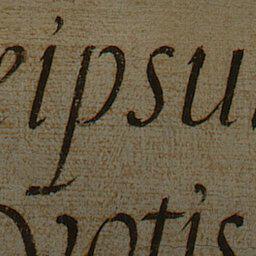 eipsu
otis